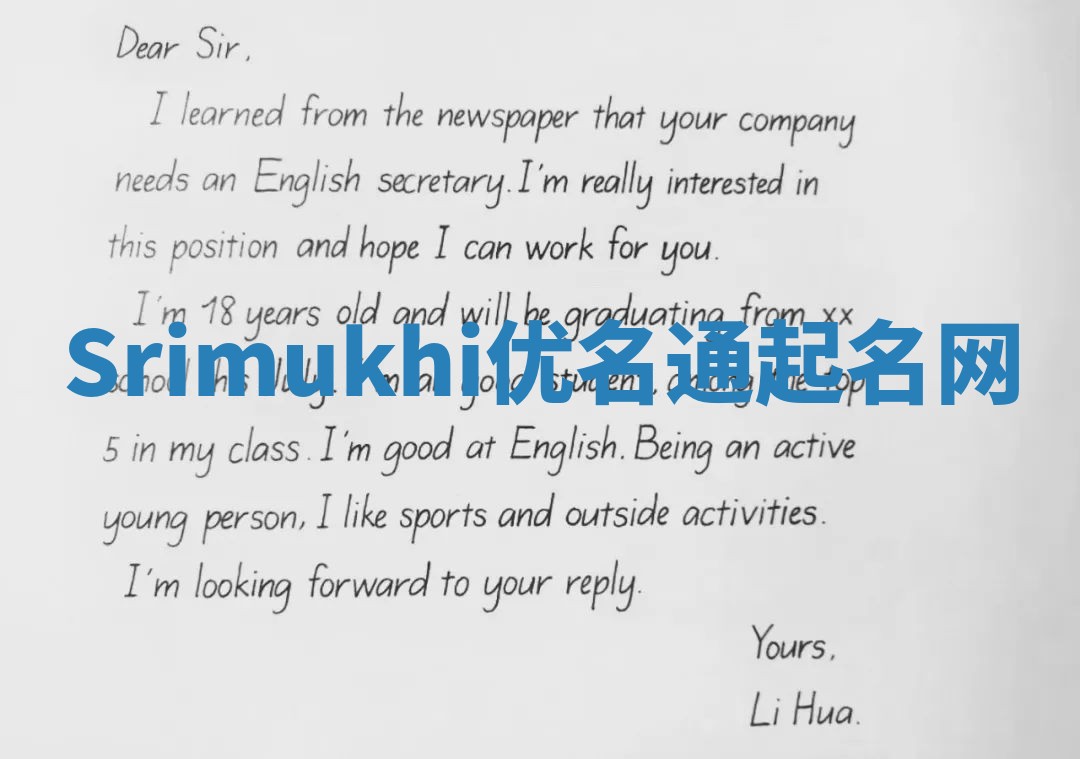 Dear Sir,
I learned from the newspaper that your company
needs an English secretary. I'm really interested in
this position and hope I can work for you.
I'm 18 years old and will be graduating from xx
Srimukhi优名通起名网
school this July. I'm a good student, among the top
5 in my class. I'm good at English. Being an active
young person, I like sports and outside activities.
I'm looking forward to your reply.
Yours,
Li Hua.